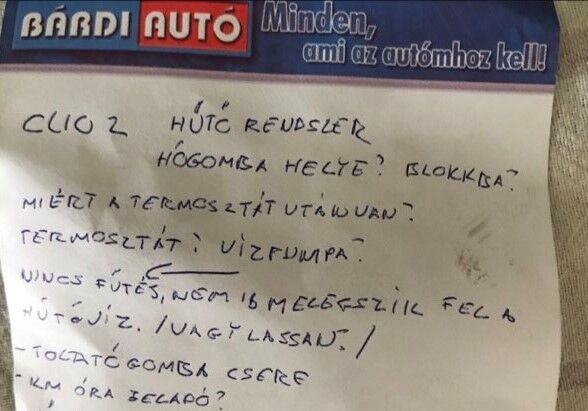 BÁRDI AUTÓ
Minden,
ami az autómhoz kell!
CLIO 2 HŰTŐ RENDSZER
HŐGOMBA HELYE? BLOKKBA?
MIÉRT A TERMOSZTÁT UTÁN VAN?
TERMOSZTÁT? VÍZPUMPA?
NINCS FŰTÉS, NEM IS MELEGSZIK FEL A
HŰTŐVÍZ. /VAGY LASSAN?/
- TOLATÓGOMBA CSERE
- KM ÓRA JELADÓ?